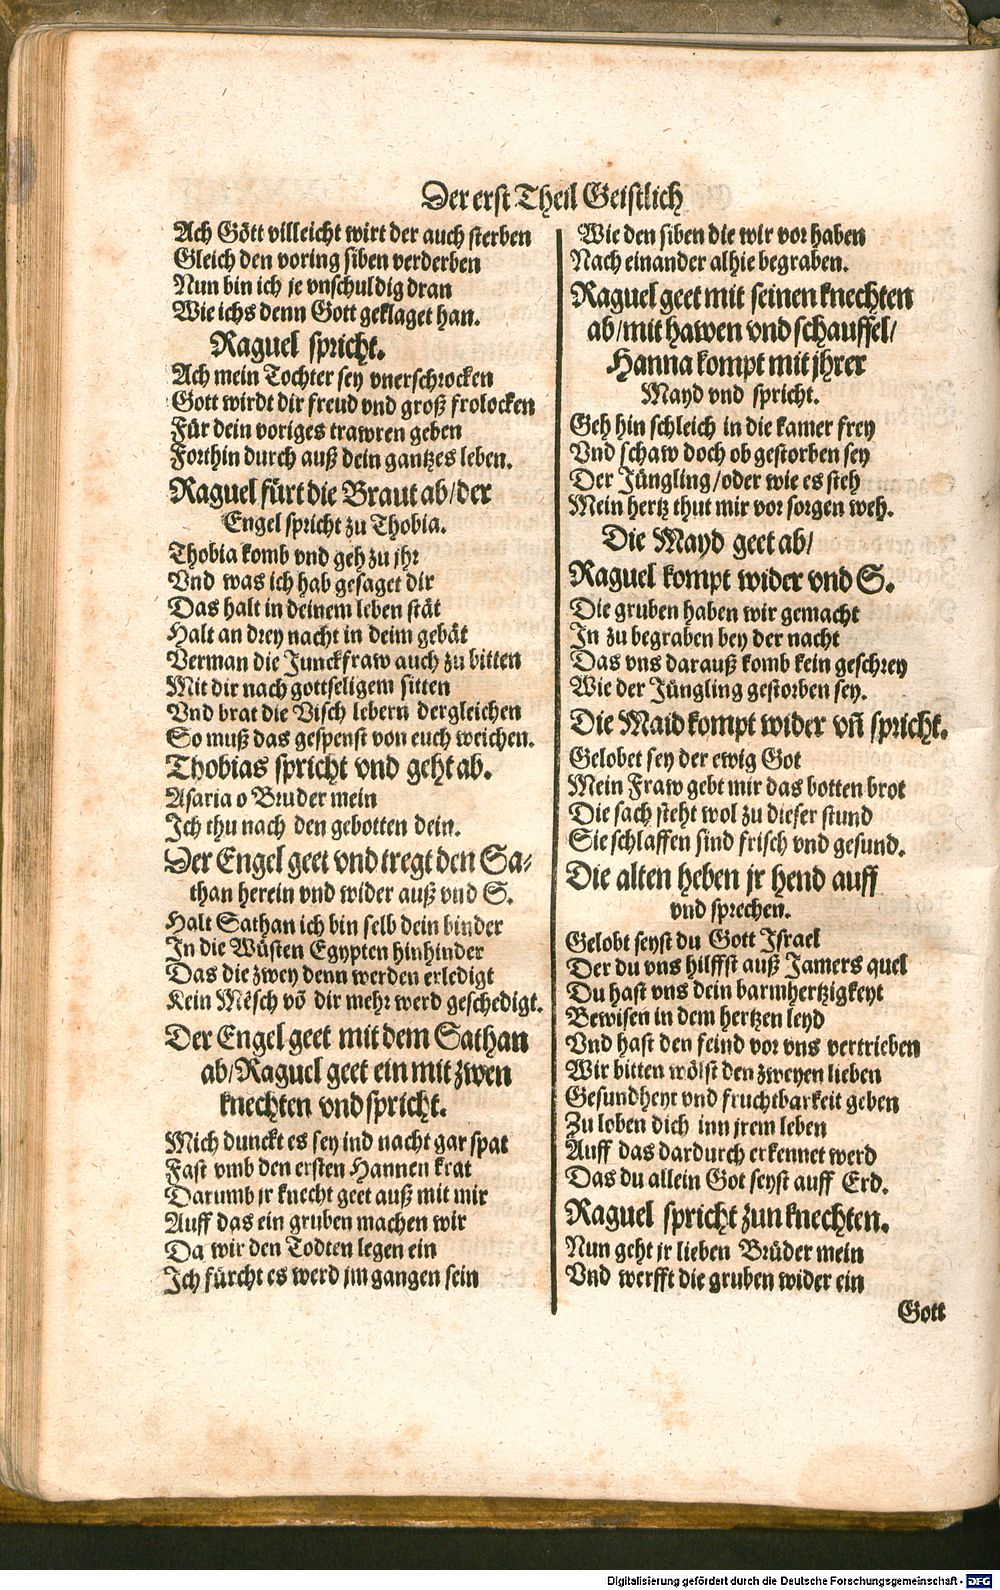 Der erst Theil Geistlich
Ach Gött villeicht wirt der auch sterben
Gleich den voring siben verderben
Nun bin ich je vnschuldig dran
Wie ichs denn Gott geklaget han.
Raguel spricht.
Ach mein Tochter sey vnerschrocken
Gott wirdt dir freud vnd groß frolocken
Für dein voriges trawren geben
Forthin durch auß dein gantzes leben.
Raguel fürt die Braut ab/der
Engel spricht zu Thobia.
Thobia komb vnd geh zu jhr
Vnd was ich hab gesaget dir
Das halt in deinem leben stät
Halt an drey nacht in deim gebät
Verman die Junckfraw auch zu bitten
Mit dir nach gottseligem sitten
Vnd brat die Visch lebern dergleichen
So muß das gespenst von euch weichen.
Thobias spricht vnd geht ab.
Asaria o Bruder mein
Ich thu nach den gebotten dein.
Der Engel geet vnd tregt den Sa-
than herein vnd wider auß vnd S.
Halt Sathan ich bin selb dein binder
In die Wüsten Egypten hinhinder
Das die zwey denn werden erledigt
Kein Mēsch vō dir mehr werd geschedigt.
Der Engel geet mit dem Sathan
ab/Raguel geet ein mit zwen
knechten vnd spricht.
Mich dunckt es sey ind nacht gar spat
Fast vmb den ersten Hannen krat
Darumb jr knecht geet auß mit mir
Auff das ein gruben machen wir
Da wir den Todten legen ein
Ich fürcht es werd jm gangen sein
Wie den siben die wir vor haben
Nach einander alhie begraben.
Raguel geet mit seinen knechten
ab/mit hawen vnd schauffel/
Hanna kompt mit jhrer
Mayd vnd spricht.
Geh hin schleich in die kamer frey
Vnd schaw doch ob gestorben sey
Der Jüngling/oder wie es steh
Mein hertz thut mir vor sorgen weh.
Die Mayd geet ab/
Raguel kompt wider vnd S.
Die gruben haben wir gemacht
In zu begraben bey der nacht
Das vns darauß komb kein geschrey
Wie der Jüngling gestorben sey.
Die Maid kompt wider vñ spricht.
Gelobet sey der ewig Got
Mein Fraw gebt mir das botten brot
Die sach steht wol zu dieser stund
Sie schlaffen sind frisch vnd gesund.
Die alten heben jr hend auff
vnd sprechen.
Gelobt seyst du Gott Israel
Der du vns hilffst auß Jamers quel
Du hast vns dein barmhertzigkeyt
Bewisen in dem hertzen leyd
Vnd hast den feind vor vns vertrieben
Wir bitten wölst den zweyen lieben
Gesundheyt vnd fruchtbarkeit geben
Zu loben dich inn jrem leben
Auff das dardurch erkennet werd
Das du allein Got seyst auff Erd.
Raguel spricht zun knechten.
Nun geht jr lieben Brüder mein
Vnd werfft die gruben wider ein
Gott
Digitalisierung gefördert durch die Deutsche Forschungsgemeinschaft - DFG